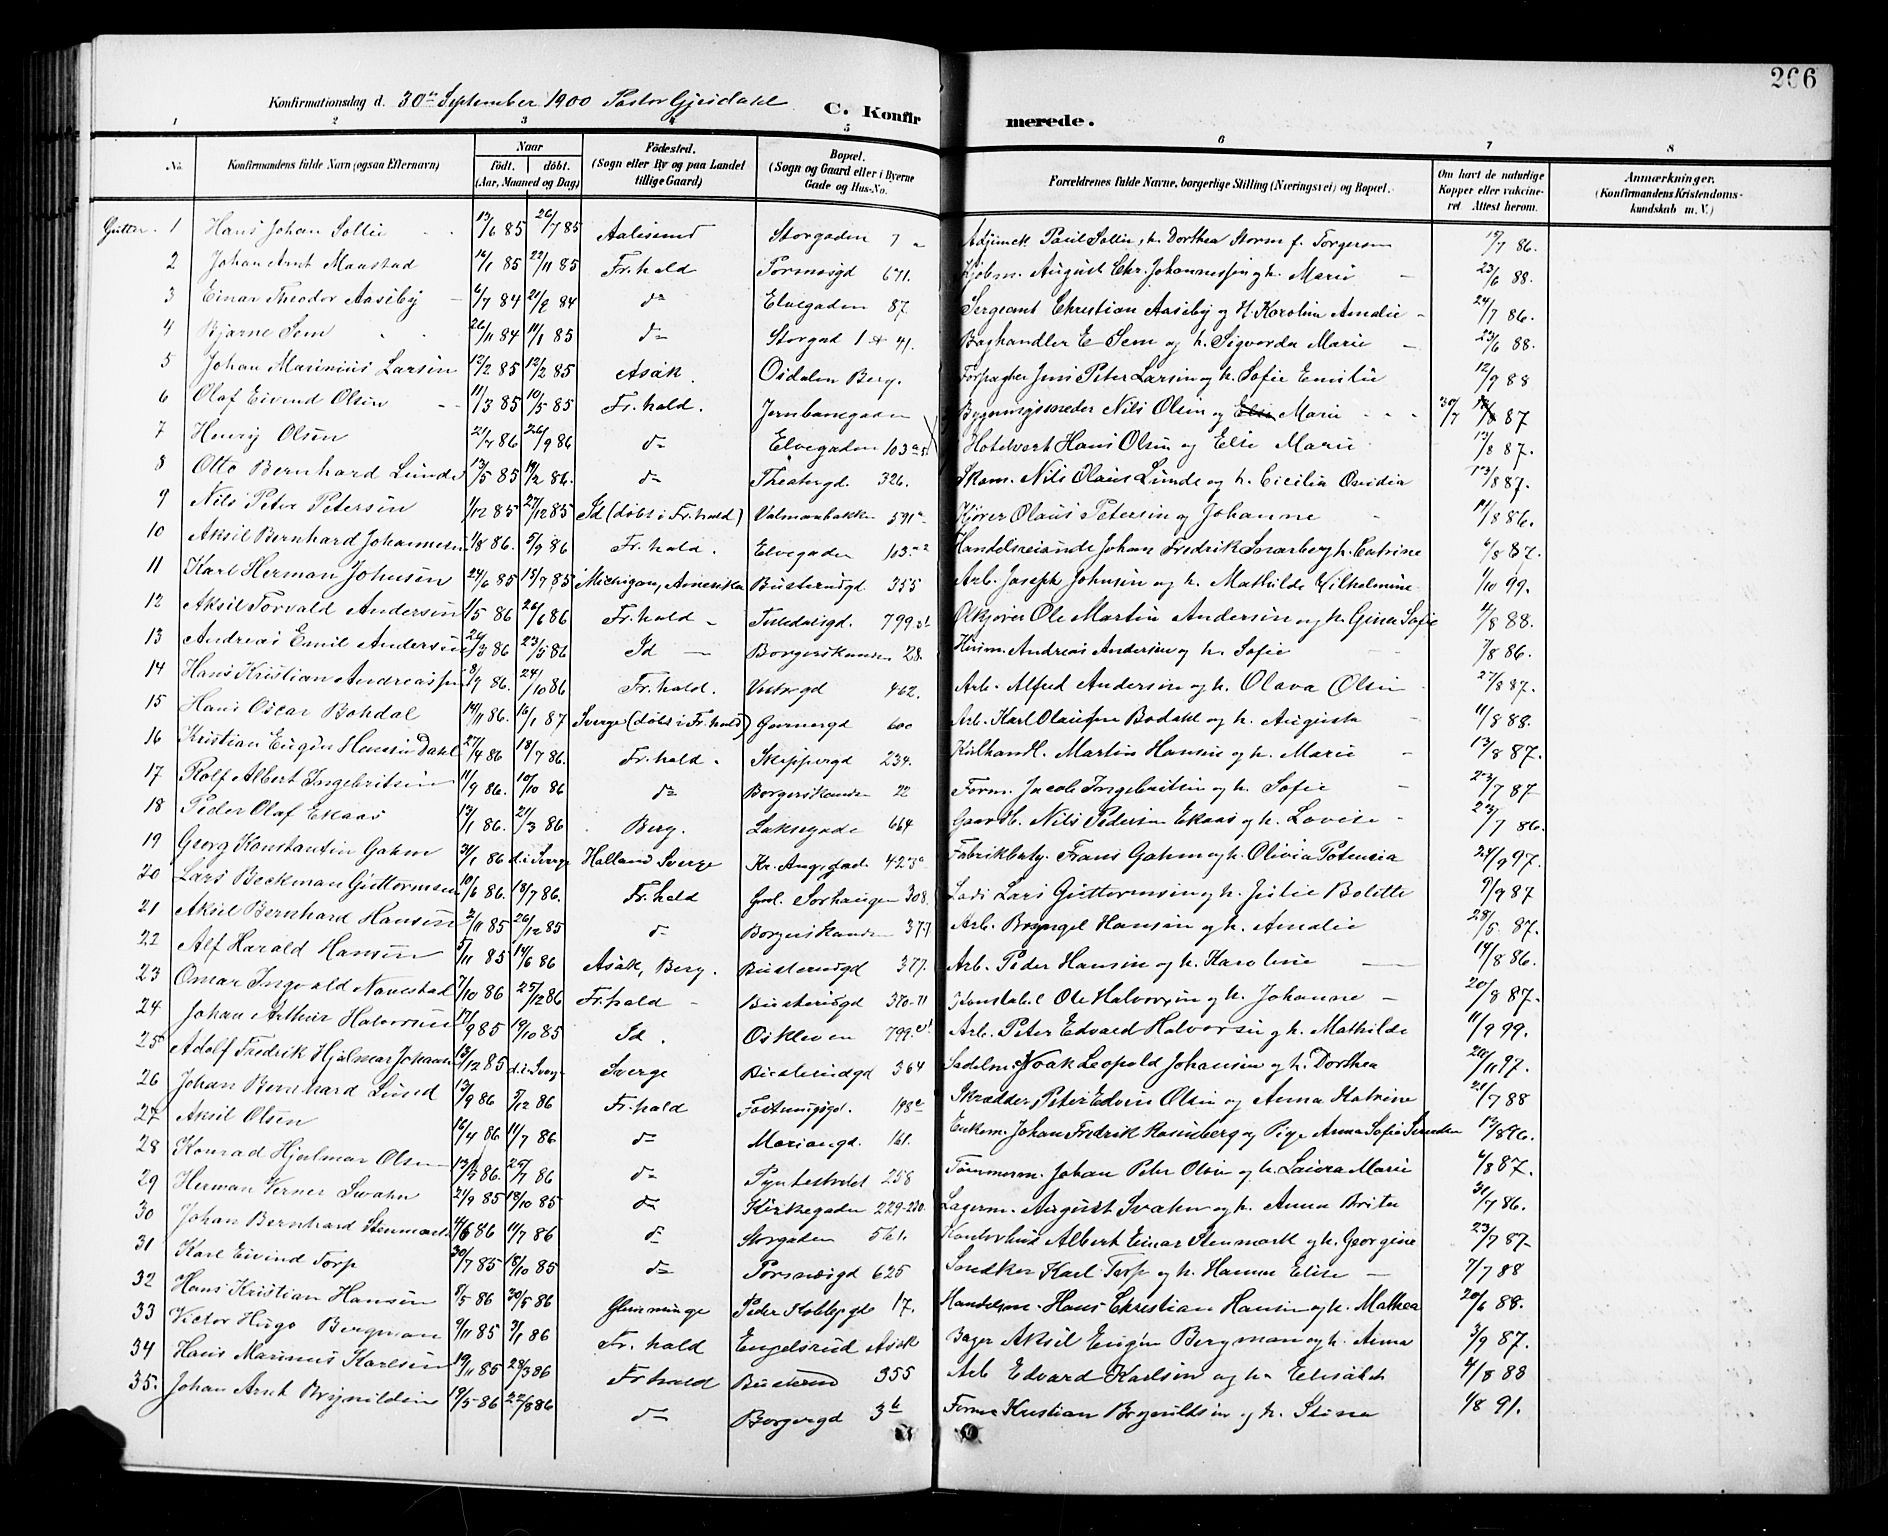 206
Konfirmationsdag d. 30te September 1900 Pastor Gjesdahl
C. Konfirmerede.
1 2 3 4 5 6 7 8
No. Konfirmandens fulde Navn (ogsaa Efternavn) Naar födt. döbt. (Aar, Maaned og Dag) Födested. (Sogn eller By og paa Landet tillige Gaard) Bopæl. (Sogn og Gaard eller i Byerne Gade og Hus-No. Forældrenes fulde Navne, borgerlige Stilling (Næringsvei) og Bopæl. Om havt de naturlige Kopper eller vakcineret. Attest herom. Anmærkninger. (Konfirmandens Kristendomskundskab m. V.)
Gutter. 1 Hans Johan Sollie 13/6 85 26/7 85 Aalesund Storgaden 7 a Adjunckt Paul Sollie, h. Dorthea Storm f. Torgersen 15/7 86.
2 Johan Arnt Maastad 16/1 85 22/11 85 Fr.hald Porsnæsgd 671. Kjøbm. August Chr. Johannessen og h. Marie 23/6 88.
3 Einar Theodor Aaseby 6/7 84 21/9 84 do Elvegaden 87. Sergeant Christian Aaseby og H. Karoline Amalie 24/7 86.
4 Bjarne Sem 26/11 84 11/1 85 do Storgad 1 & 41. Boghandler E. Sem og h. Sigvarda Marie 23/6 88.
5 Johan Marinius Larsen 12/2 85 12/2 85 Asak. Osdalen Berg. Forpagter Jens Peter Larsen og h. Sofie Emilie 12/9 88
6 Olaf Eivend Olsen 11/3 85 10/5 85 Fr.hald. Jernbanegaden Bygningssneder Nils Olsen og Marie 30/7 87
7 Henry Olsen 21/7 86 26/9 86 do Elvegaden 103 Hotelvert Hans Olsen og Else Marie 12/8 87.
8 Otto Bernhard Lunde 13/5 85 14/2 86. do Theatergd. 326. Skom. Nils Olaus Lunde og h. Cicilia Ovidia 13/8 87.
9 Nils Peter Petersen 1/12 85 27/12 85 Id (döbt i Fr.hald) Valmanbakken 591 a Kjører Olaus Petersen og Johanne 11/8 86.
10 Aksel Bernhard Johannesen 1/8 86. 5/9 86 Fr.hald. Elvegaden 103 Handelsreisende Johan Fredrik Snarberg h. Catrine 6/8 87.
11 Karl Herman Johnsen 24/6 85 18/7 85 Michigan, Amerika Busterudgd 355 Arb. Joseph Johnsen og h. Mathilde Wilhelmine 1/10 99.
12 Aksel Torvald Andersen 1/5 86 26/6 86 Fr.hald Tistedalsgd. 799 Ølkjører Ole Martin Andersen og h. Gina Sofie 4/8 88.
13 Andreas Emil Andersen 26/3 86 23/5 86 Id Borgerskansen 28. Andreas Andersen og h. Sofie 7/8 86.
14 Hans Kristian Andreassen 8/7 86. 24/10 86 Fr.hald. Vestregd 462. Arb. Alfred Andersen og h. Olava Olsen 27/8 87.
15 Hans Oscar Bohdal 14/11 86. 16/1 87 Sverge (döbt i Fr.hald) Garvergd 600 Arb. Karl Olausen Bodahl og h. Augusta 11/8 88.
16 Kristian Eugén Hansen Dahl 27/4 86 18/7 86. Fr.hald. Skippergd 234. Kulhandl. Martin Hansen og h. Marie 13/8 87.
17 Rolf Albert Ingebritsen 11/9 86. 10/10 86 do Borgerskansen 22 Form. Jacob Ingebritsen og h. Sofie 23/7 87
18 Peder Olaf Ekaas 13/1 86. 21/3 86 Berg. Laksegade 664 Gaardb. Nils Pedersen Ekaas og h. Lovise 23/7 86.
19 Georg Konstantin Gahm 31/1 86 d. i Sverge Halland Sverge Kr. Aug. gad. 423 a Fabrikbesty. Frans Gahm og h. Olivia Potensia 24/9 97.
20 Lars Beckman Guttormsen 10/6 86. 18/7 86. Fr.hald Sorhaugen 308. Lods Lars Guttormsen og h. Julie Bolette 9/9 87
21 Aksel Bernhard Hansen 2/11 85 26/12 85 do Borgerskansen 377 Arb. Bryngel Hansen og h. Amalie 28/5 87.
22 Alf Harald Hansen 5/11 85 14/6 86 Asak, Berg. Busterudgd 377. Arb. Peder Hansen og h. Karoline 14/8 86.
23 Omar Ingvald Navestad 7/10 86 25/12 86 Fr.hald Busterudgd 370-71 Konstabel Ole Halvorsen og h. Johanne 20/8 87.
24 Johan Arthur Halvorsen 17/9 85 19/10 85 Id. Oskleven 799 Arb. Peter Edvard Halvorsen og h. Mathilde 11/9 99.
25 Adolf Fredrik Hjalmar Johansen 13/12 85 d. i Sverge Sverge Busterudgd 364 Sadelm. Noak Leopold Johansen og h. Dorthea 20/11 97.
26 Johan Bernhard Lund 13/9 86 5/12 86 Fr.hald Fæstningsgd. 198 Skrædder Peter Edvin Olsen og Anna Katrine 21/7 88
27 Aksel Olsen 16/4 86 11/7 86 do Mariangd. 161. Enkem. Johan Fredrik Rosenberg og Pige Anna Sofie 13/8 96.
28 Konrad Hjalmar Olsen 13/2 86. 25/7 86 do 258 Tømmerm. Johan Peter Olsen og h. Laura Marie 6/8 87.
29 Herman Verner Swahn 21/9 85 18/10 85 do Kirkegaden 229-230. Lagerm. August Svahn og h. Anna Brita 31/7 86.
30 Johan Bernhard Stenmark 4/6 86 11/7 86 do Storgaden 561. Kontorbud Albert Einar Stenmark og h. Georgine 23/7 87
31 Karl Eivind Torp 30/7 85 18/10 85 do Porsnæsgd 625 Snedker Karl Torp og h. Hanna Elise 7/7 88
32 Hans Kristian Hansen 8/5 86 30/5 86 Glemminge Peder Kolbjgd 17. Handelsm. Hans Christian Hansen og h. Mathea 20/6 88.
33 Victor Hugo Bergman 9/11 85 3/1 86 Fr.hald Engelsrud Asak Bager Aksel Eugén Bergman og h. Anna 3/9 87.
34 Hans Marinus Karlsen 19/11 85 28/3 86 Fr.hald Busterud 355 Arb Edvard Karlsen og h. Elisabeth 4/8 88
35. Johan Arnt Brynildsen 19/5 86 22/8 86 do Borgergd 3 b Form. Kristian Brynildsen og h. Stina 1/8 91.